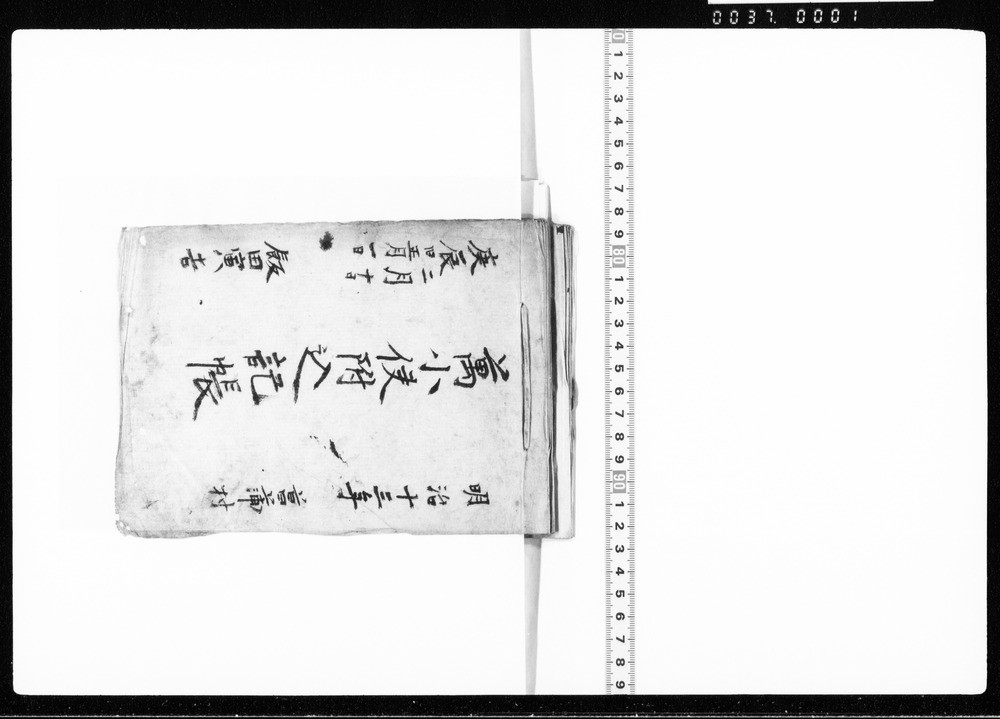 明治十三年
菖蒲村
萬小使附込記帳
庚辰
二月十日
旧正月一日
飯田寅吉
0037. 0001
0 1 2 3 4 5 6 7 8 9 80 1 2 3 4 5 6 7 8 9 90 1 2 3 4 5 6 7 8 9